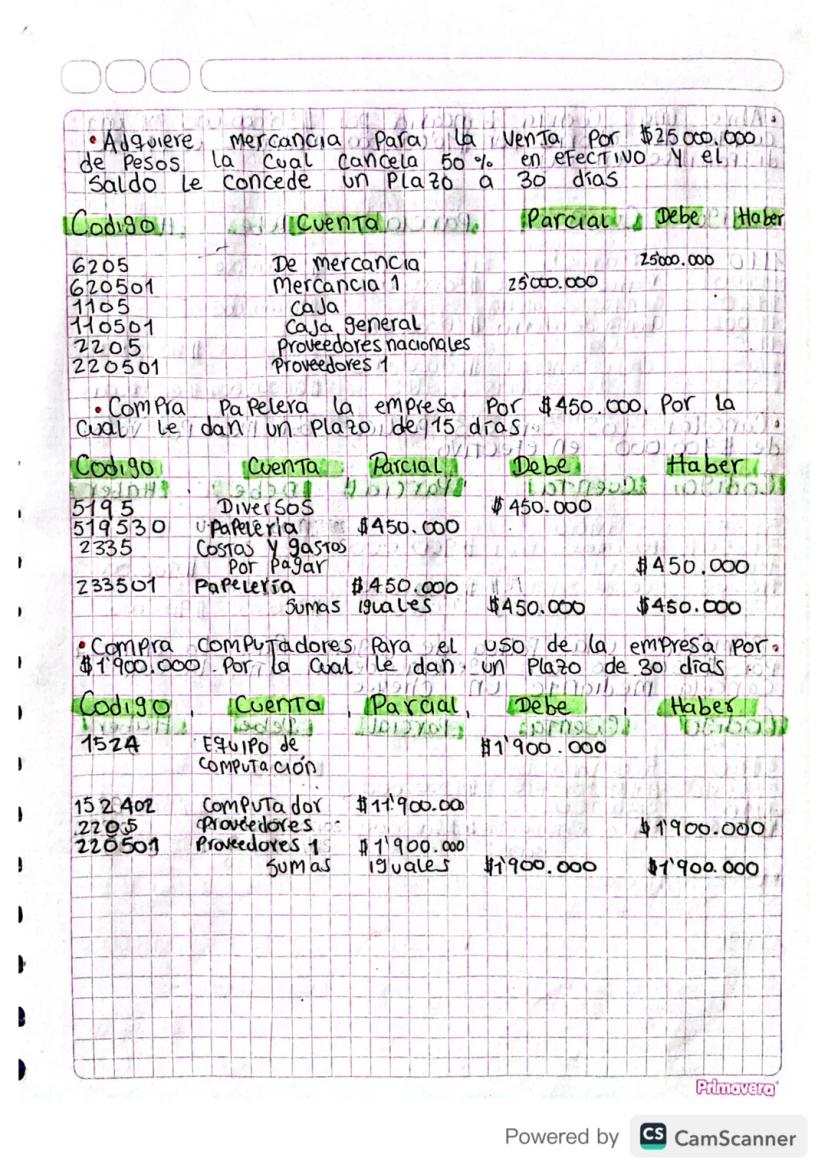 • Adquiere mercancia Para la venta Por $25'000.000
de Pesos la cual cancela 50% en efectivo y el
saldo le concede un Plazo a 30 días
Codigo Cuenta Parcial Debe Haber
6205 De mercancia 25'000.000
620501 Mercancia 1 25'000.000
1105 Caja
110501 Caja general
2205 Proveedores nacionales
220501 Proveedores 1
• Compra Papelera la empresa Por $450.000. Por la
cual le dan un Plazo de 15 días
Codigo Cuenta Parcial Debe Haber
5195 Diversos $450.000
519530 Papelería $450.000
2335 Costos y gastos
Por Pagar $450.000
233501 Papelería $450.000
Sumas iguales $450.000 $450.000
• Compra computadores Para el uso de la empresa Por
$1'900.000. Por la cual le dan un Plazo de 30 días
Codigo Cuenta Parcial Debe Haber
1524 Equipo de $1'900.000
computación
152402 Computador $11'900.00
2205 Proveedores $1'900.000
220501 Proveedores 1 $1'900.000
Sumas iguales $1'900.000 $1'900.000
Primavera
Powered by CS CamScanner